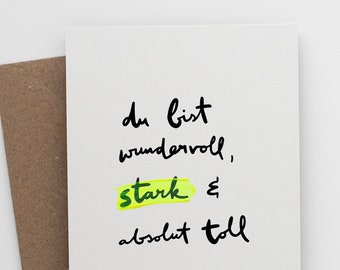 du bist
wundervoll,
stark &
absolut toll